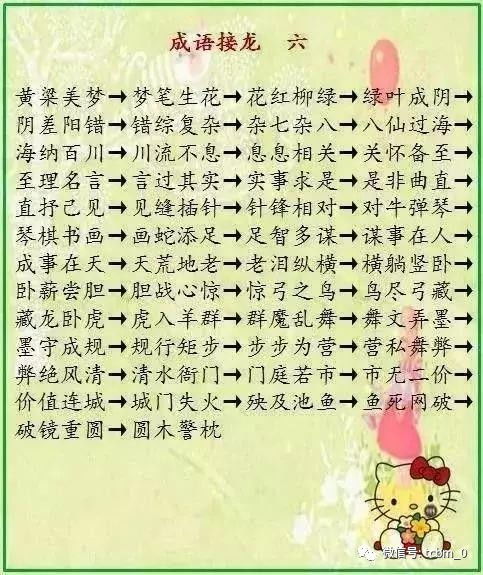 成语接龙 六
黄粱美梦→梦笔生花→花红柳绿→绿叶成阴→
阴差阳错→错综复杂→杂七杂八→八仙过海→
海纳百川→川流不息→息息相关→关怀备至→
至理名言→言过其实→实事求是→是非曲直→
直抒己见→见缝插针→针锋相对→对牛弹琴→
琴棋书画→画蛇添足→足智多谋→谋事在人→
成事在天→天荒地老→老泪纵横→横躺竖卧→
卧薪尝胆→胆战心惊→惊弓之鸟→鸟尽弓藏→
藏龙卧虎→虎入羊群→群魔乱舞→舞文弄墨→
墨守成规→规行矩步→步步为营→营私舞弊→
弊绝风清→清水衙门→门庭若市→市无二价→
价值连城→城门失火→殃及池鱼→鱼死网破→
破镜重圆→圆木警枕
微信号: tcbm_0